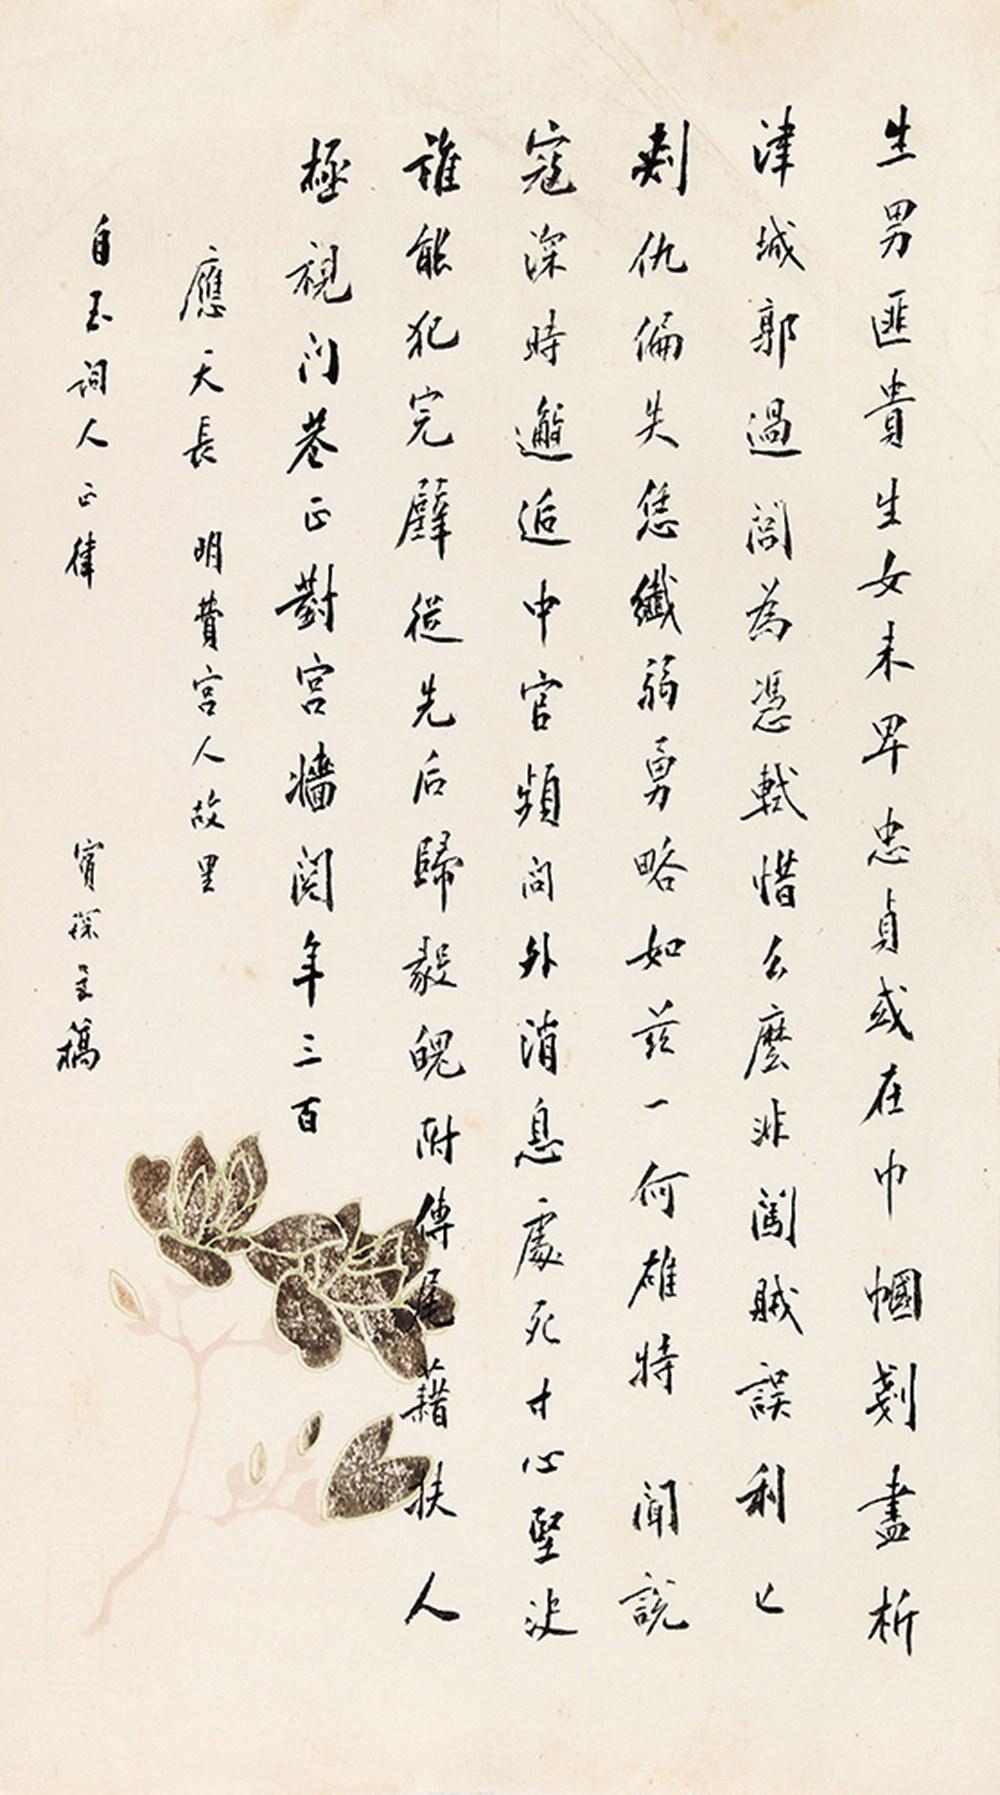 生男匪貴生女未卑忠貞或在巾幗剗盡析
津城郭過閭為憑軾惜么麼非闖賊誤利匕
剚仇偏失恁纖弱勇略如茲一何雄特聞說
寇深時邂逅中官頻問外消息處死寸心堅決
誰能犯完璧從先后歸毅魄附傳尾藉扶人
極視門巷正對宮牆闋年三百
應天長 明費宮人故里
自玉詞人正律
賓深呈稿